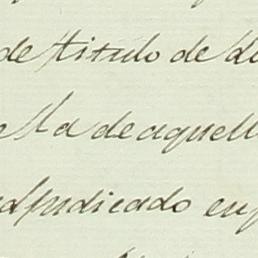 de titulo de
la de aquell
adjudicado en